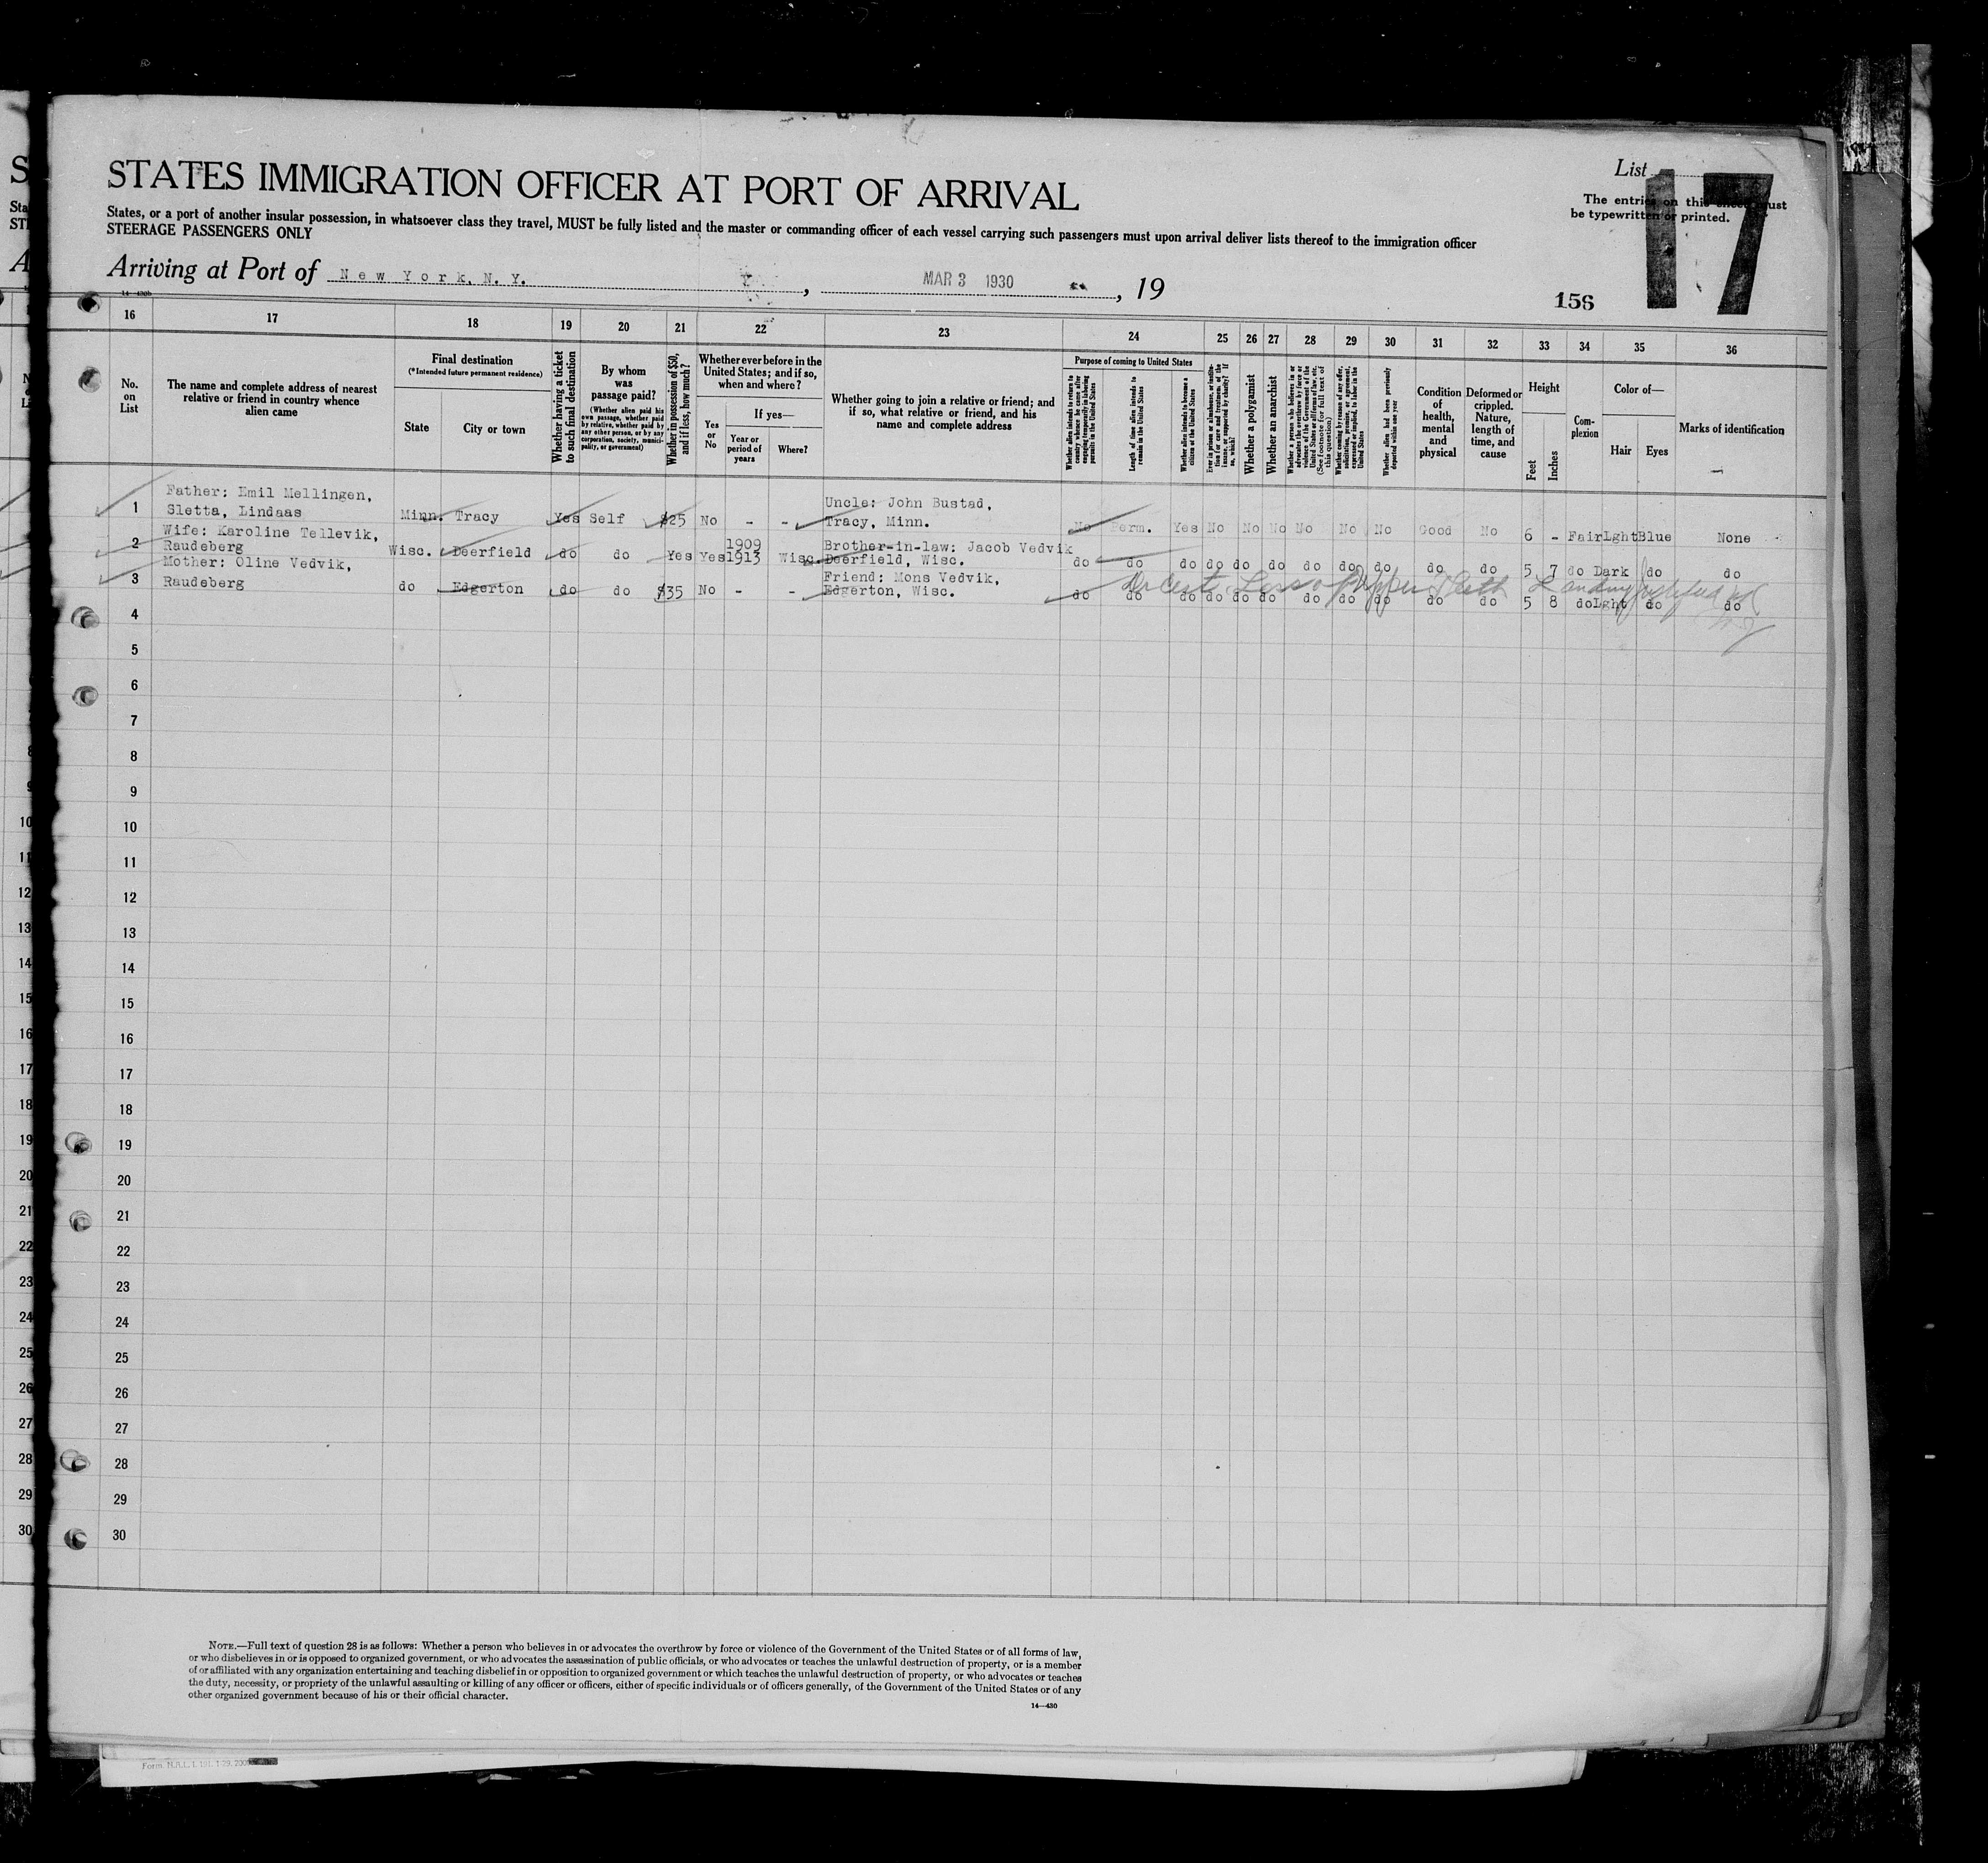 STATES IMMIGRATION OFFICER AT PORT OF ARRIVAL
List
17
The entries on this sheet must
be typewritten or printed.
States, or a port of another insular possession, in whatsoever class they travel, MUST be fully listed and the master or commanding officer of each vessel carrying such passengers must upon arrival deliver lists thereof to the immigration officer
STEERAGE PASSENGERS ONLY
Arriving at Port of New York, N. Y. , MAR 3 1930 , 19
156
14—430b
16 17 18 19 20 21 22 23 24 25 26 27 28 29 30 31 32 33 34 35 36
No. on List
The name and complete address of nearest relative or friend in country whence alien came
Final destination
(*Intended future permanent residence)
State
City or town
Whether having a ticket to such final destination
By whom was passage paid?
(Whether alien paid his own passage, whether paid by relative, whether paid by any other person, or by any corporation, society, municipality, or government)
Whether in possession of $50, and if less, how much?
Whether ever before in the United States; and if so, when and where?
Yes or No
If yes—
Year or period of years
Where?
Whether going to join a relative or friend; and if so, what relative or friend, and his name and complete address
Purpose of coming to United States
Whether alien intends to return to country whence he came after engaging temporarily in laboring pursuits in the United States
Length of time alien intends to remain in the United States
Whether alien intends to become a citizen of the United States
Ever in prison or almshouse, or institution for care and treatment of the insane, or supported by charity? If so, which?
Whether a polygamist
Whether an anarchist
Whether a person who believes in or advocates the overthrow by force or violence of the Government of the United States or all forms of law, etc. (See footnote for full text of this question)
Whether coming by reason of any offer, solicitation, promise, or agreement, expressed or implied, to labor in the United States
Whether alien had been previously deported within one year
Condition of health, mental and physical
Deformed or crippled. Nature, length of time, and cause
Height
Feet
Inches
Complexion
Color of—
Hair
Eyes
Marks of identification
1 Father: Emil Mellingen, Sletta, Lindaas Minn. Tracy Yes Self $25 No - - Uncle: John Bustad, Tracy, Minn. No Perm. Yes No No No No No No Good No 6 - Fair Lght Blue None
2 Wife: Karoline Tellevik, Raudeberg Wisc. Deerfield do do Yes Yes 1909 1913 Wisc. Brother-in-law: Jacob Vedvik Deerfield, Wisc. do do do do do do do do do do do 5 7 do Dark do do
3 Mother: Oline Vedvik, Raudeberg do Edgerton do do $35 No - - Friend: Mons Vedvik, Edgerton, Wisc. do do do do do do do do do do do 5 8 do Lght do do
Loss of upper teeth
4
5
6
7
8
9
10
11
12
13
14
15
16
17
18
19
20
21
22
23
24
25
26
27
28
29
30
NOTE.—Full text of question 28 is as follows: Whether a person who believes in or advocates the overthrow by force or violence of the Government of the United States or of all forms of law,
or who disbelieves in or is opposed to organized government, or who advocates the assassination of public officials, or who advocates or teaches the unlawful destruction of property, or is a member
of or affiliated with any organization entertaining and teaching disbelief in or opposition to organized government or which teaches the unlawful destruction of property, or who advocates or teaches
the duty, necessity, or propriety of the unlawful assaulting or killing of any officer or officers, either of specific individuals or of officers generally, of the Government of the United States or of any
other organized government because of his or their official character.
14—430